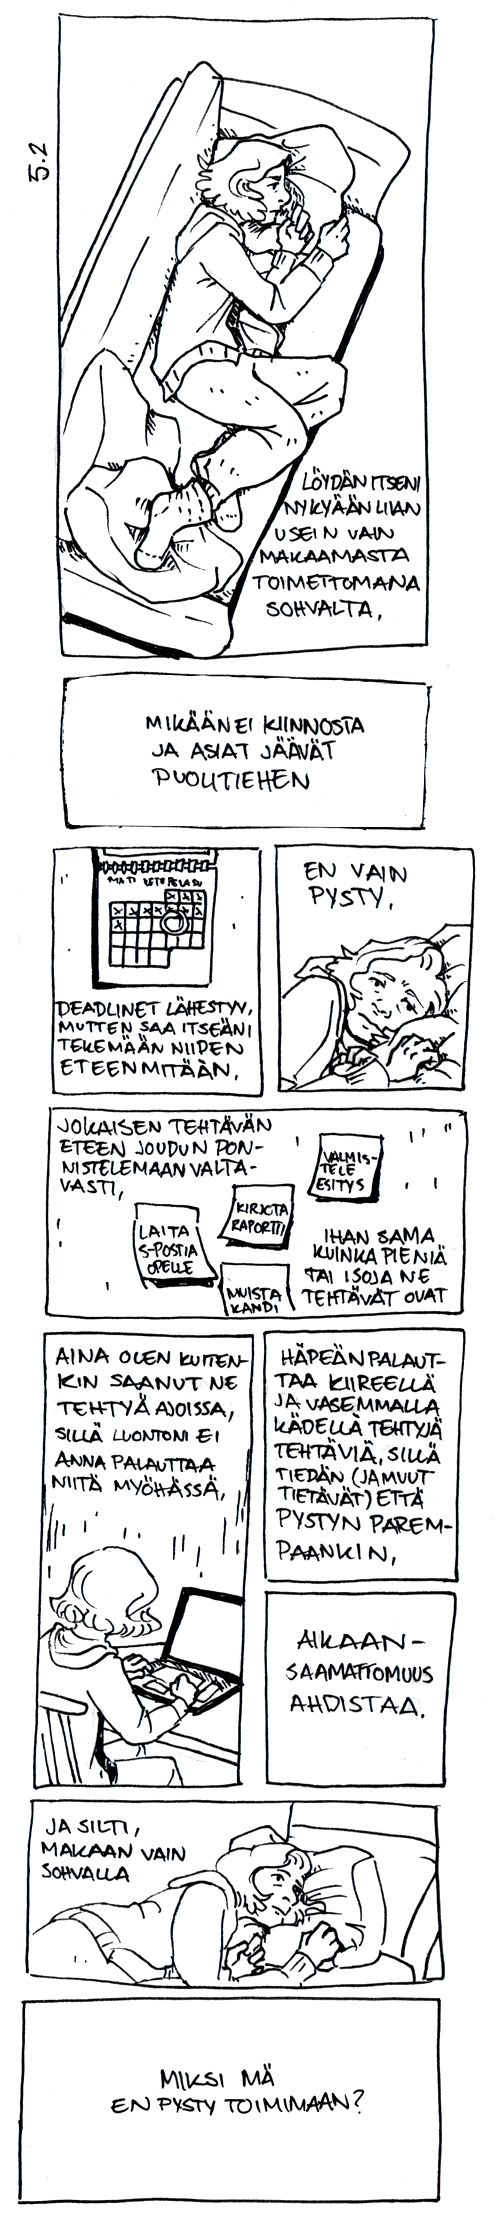 5.2
LÖYDÄN ITSENI
NYKYÄÄN LIIAN
USEIN VAIN
MAKAAMASTA
TOIMETTOMANA
SOHVALTA.
MIKÄÄN EI KIINNOSTA
JA ASIAT JÄÄVÄT
PUOLITIEHEN
MA TI KE TO PE LA SU
DEADLINET LÄHESTYY,
MUTTEN SAA ITSEÄNI
TEKEMÄÄN NIIDEN
ETEEN MITÄÄN.
EN VAIN
PYSTY.
JOKAISEN TEHTÄVÄN
ETEEN JOUDUN PON-
NISTELEMAAN VALTA-
VASTI,
VALMIS-
TELE
ESITYS
KIRJOTA
RAPORTTI
LAITA
S-POSTIA
OPELLE
MUISTA
KANDI
IHAN SAMA
KUINKA PIENIÄ
TAI ISOJA NE
TEHTÄVÄT OVAT
AINA OLEN KUITEN-
KIN SAANUT NE
TEHTYÄ AJOISSA,
SILLÄ LUONTONI EI
ANNA PALAUTTAA
NIITÄ MYÖHÄSSÄ.
HÄPEÄN PALAUT-
TAA KIIREELLÄ
JA VASEMMALLA
KÄDELLÄ TEHTYJÄ
TEHTÄVIÄ, SILLÄ
TIEDÄN (JA MUUT
TIETÄVÄT) ETTÄ
PYSTYN PAREM-
PAANKIN.
AIKAAN-
SAAMATTOMUUS
AHDISTAA.
JA SILTI,
MAKAAN VAIN
SOHVALLA
MIKSI MÄ
EN PYSTY TOIMIMAAN?